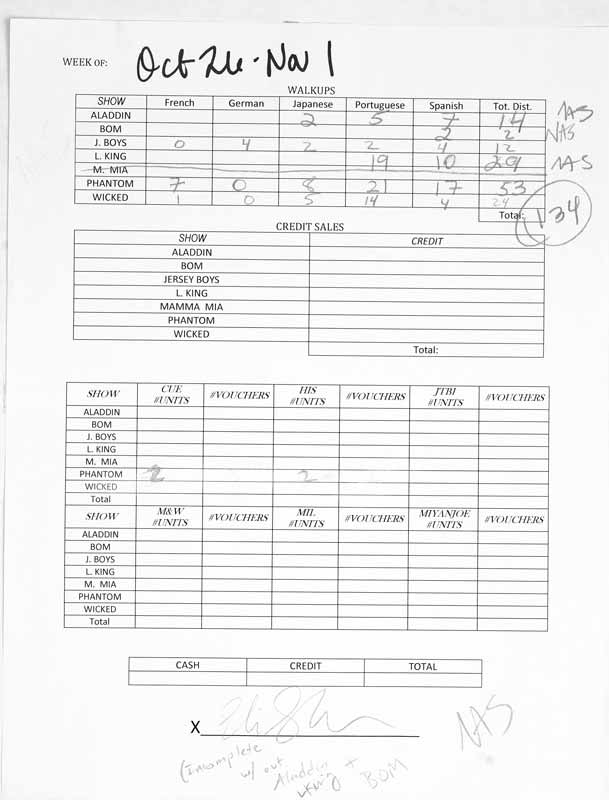 WEEK OF: Oct 26 - Nov 1
WALKUPS
SHOW French German Japanese Portuguese Spanish Tot. Dist.
ALADDIN 2 5 7 14 NAS
BOM 2 2 NAS
J. BOYS 0 4 2 2 4 12
L. KING 19 10 29 NAS
M. MIA
PHANTOM 7 0 8 21 17 53
WICKED 1 0 5 14 4 24
Total: 134
CREDIT SALES
SHOW CREDIT
ALADDIN
BOM
JERSEY BOYS
L. KING
MAMMA MIA
PHANTOM
WICKED
Total:
SHOW CUE #UNITS #VOUCHERS HIS #UNITS #VOUCHERS JTBI #UNITS #VOUCHERS
ALADDIN
BOM
J. BOYS
L. KING
M. MIA
PHANTOM 2 2
WICKED
Total
SHOW M&W #UNITS #VOUCHERS MIL #UNITS #VOUCHERS MIYANJOE #UNITS #VOUCHERS
ALADDIN
BOM
J. BOYS
L. KING
M. MIA
PHANTOM
WICKED
Total
CASH CREDIT TOTAL
X
NAS
(Incomplete
w/ out
Aladdin +
King BOM